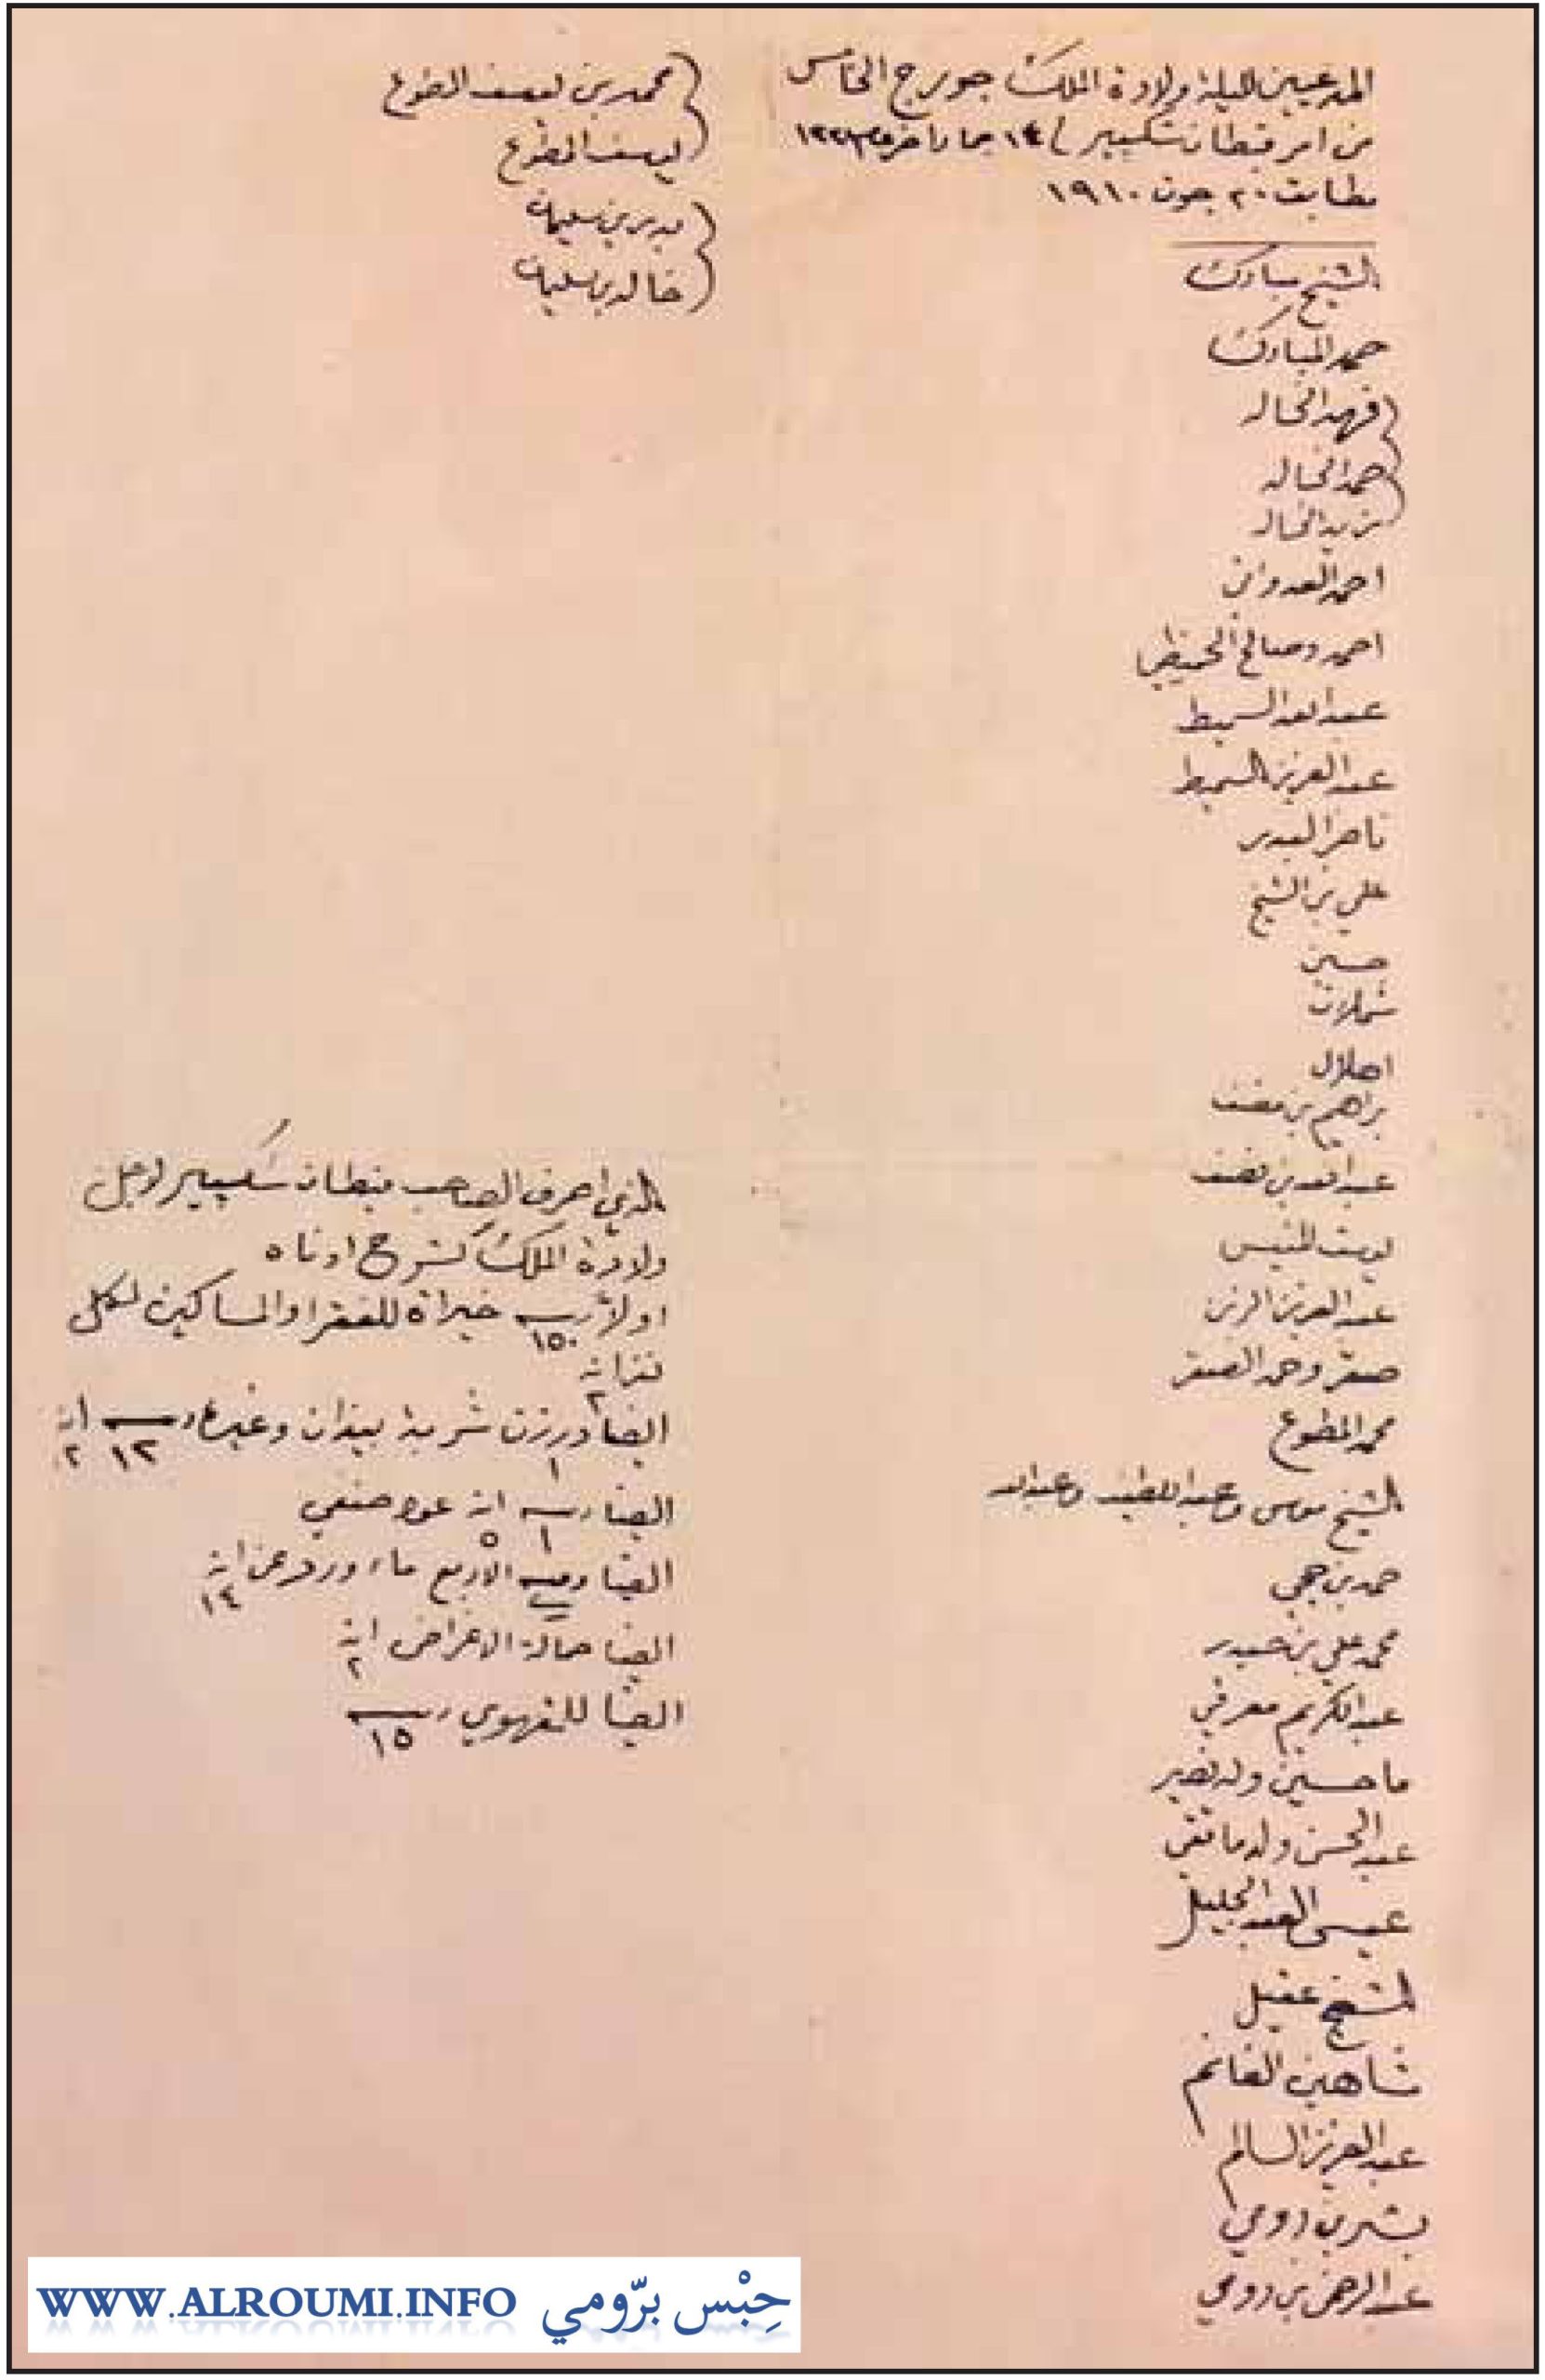 المدعيين لليلة ولادة الملك جورج الخامس
من امر قبطان شكسبير في ١٤ جماد اخر
مطابق ٢٠ جون ١٩١٠
الشيخ مبارك
حمد المبارك
فهد الخالد
حمد الخالد
زيد الخالد
احمد العدواني
احمد وصالح الحميضي
عبدالله السميط
عبدالعزيز السميط
ناصر البدر
علي بن الشيخ
حسين
شملان
اهلال
براهيم بن مضف
عبدالله بن مضف
يوسف المنيس
عبدالعزيز الزبن
صقر وحمد الصقر
محمد المطوع
الشيخ موسى وعبداللطيف وعبدالله
حمد بن حجي
محمد علي بن حيدر
عبدالكريم معرفي
ما حسين ولد نصير
عبدالحسن ولد ماتقي
عيسى العبدالجليل
الشيخ عقيل
شاهين الغانم
عبدالعزيز السالم
بشر بن رومي
عبدالرحمن بن رومي
محمد بن يوسف المطوع
يوسف المطوع
بدر بن سليمان
خالد بن سليمان
الذي اصرف الصاحب قبطان شكسبير لاجل
ولادة الملك كشرح ادناه
اولا ربيه ١٥٠ خيراة للفقرا والمساكين لكل
نفر انه ٢
ايضا درزن ١ شربة بيذان وغيره ربيه ١٢ انه ٢
ايضا ربيه ١ انه ٥ عود صنفي
ايضا الاربع ماء ورد عن انه ١٤
ايضا حمالة الاغراض انه ٢
ايضا للقهوي ربيه ١٥
WWW.ALROUMI.INFO حِبْس برّومي